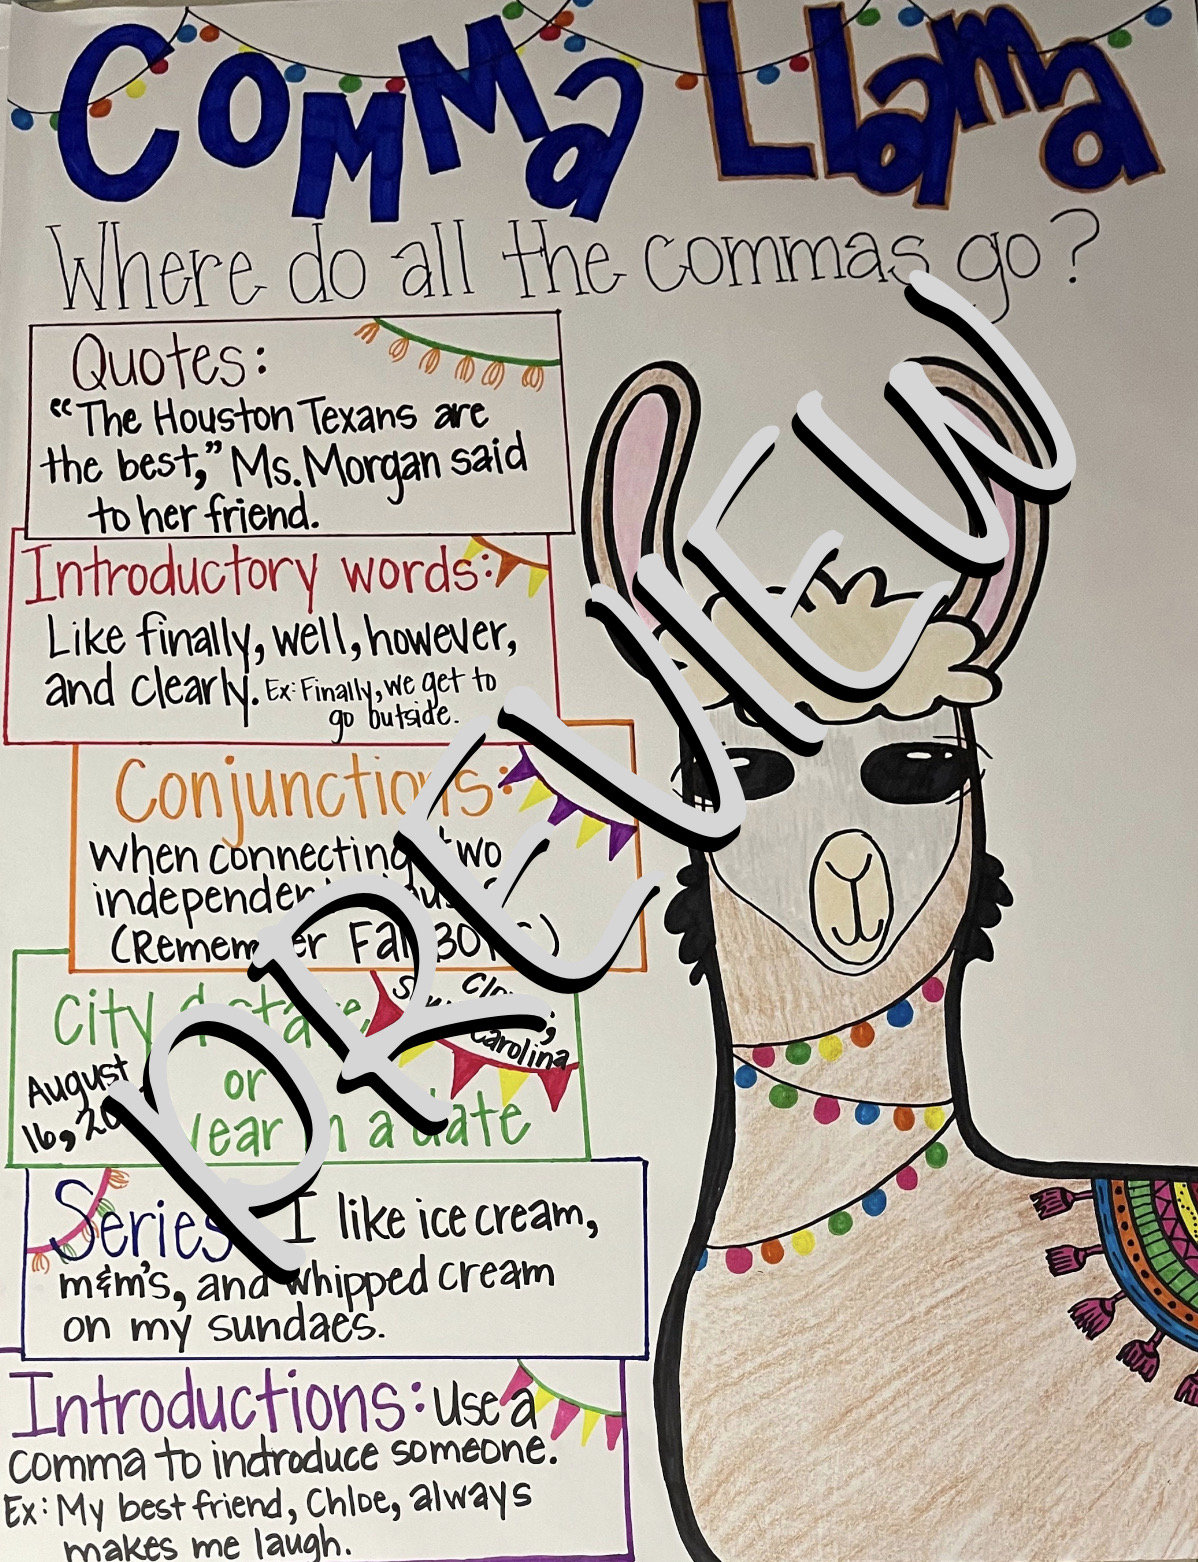 Comma Llama
Where do all the commas go?
Quotes:
"The Houston Texans are
the best," Ms. Morgan said
to her friend.
Introductory words:
Like finally, well, however,
and clearly. Ex: Finally, we get to
go outside.
Conjunctions:
when connecting two
independent
(Remember
City
or
year in a date
August
16,
Carolina
Series: I like ice cream,
m&m's, and whipped cream
on my sundaes.
Introductions: Use a
comma to indroduce someone.
Ex: My best friend, Chloe, always
makes me laugh.
PREVIEW